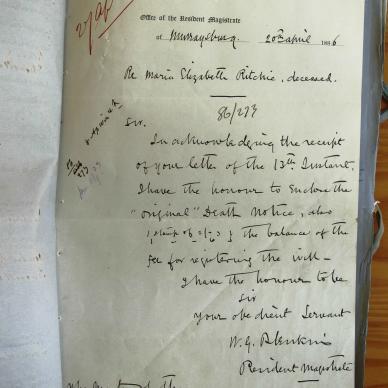 27 Ap
Office of the Resident Magistrate
of Murraysburg. 20th April 1886
Re Maria Elizabeth Ritchie, deceased.
86/273
Sir.
In acknowledging the receipt
of your letter of the 13th Instant,
I have the honour to Enclose the
"original" Death Notice, also
1 stamp of the balance of the
fee for registering the will –
I have the honour to be
Sir
Your obedient Servant
W. G.
Resident Magistrate